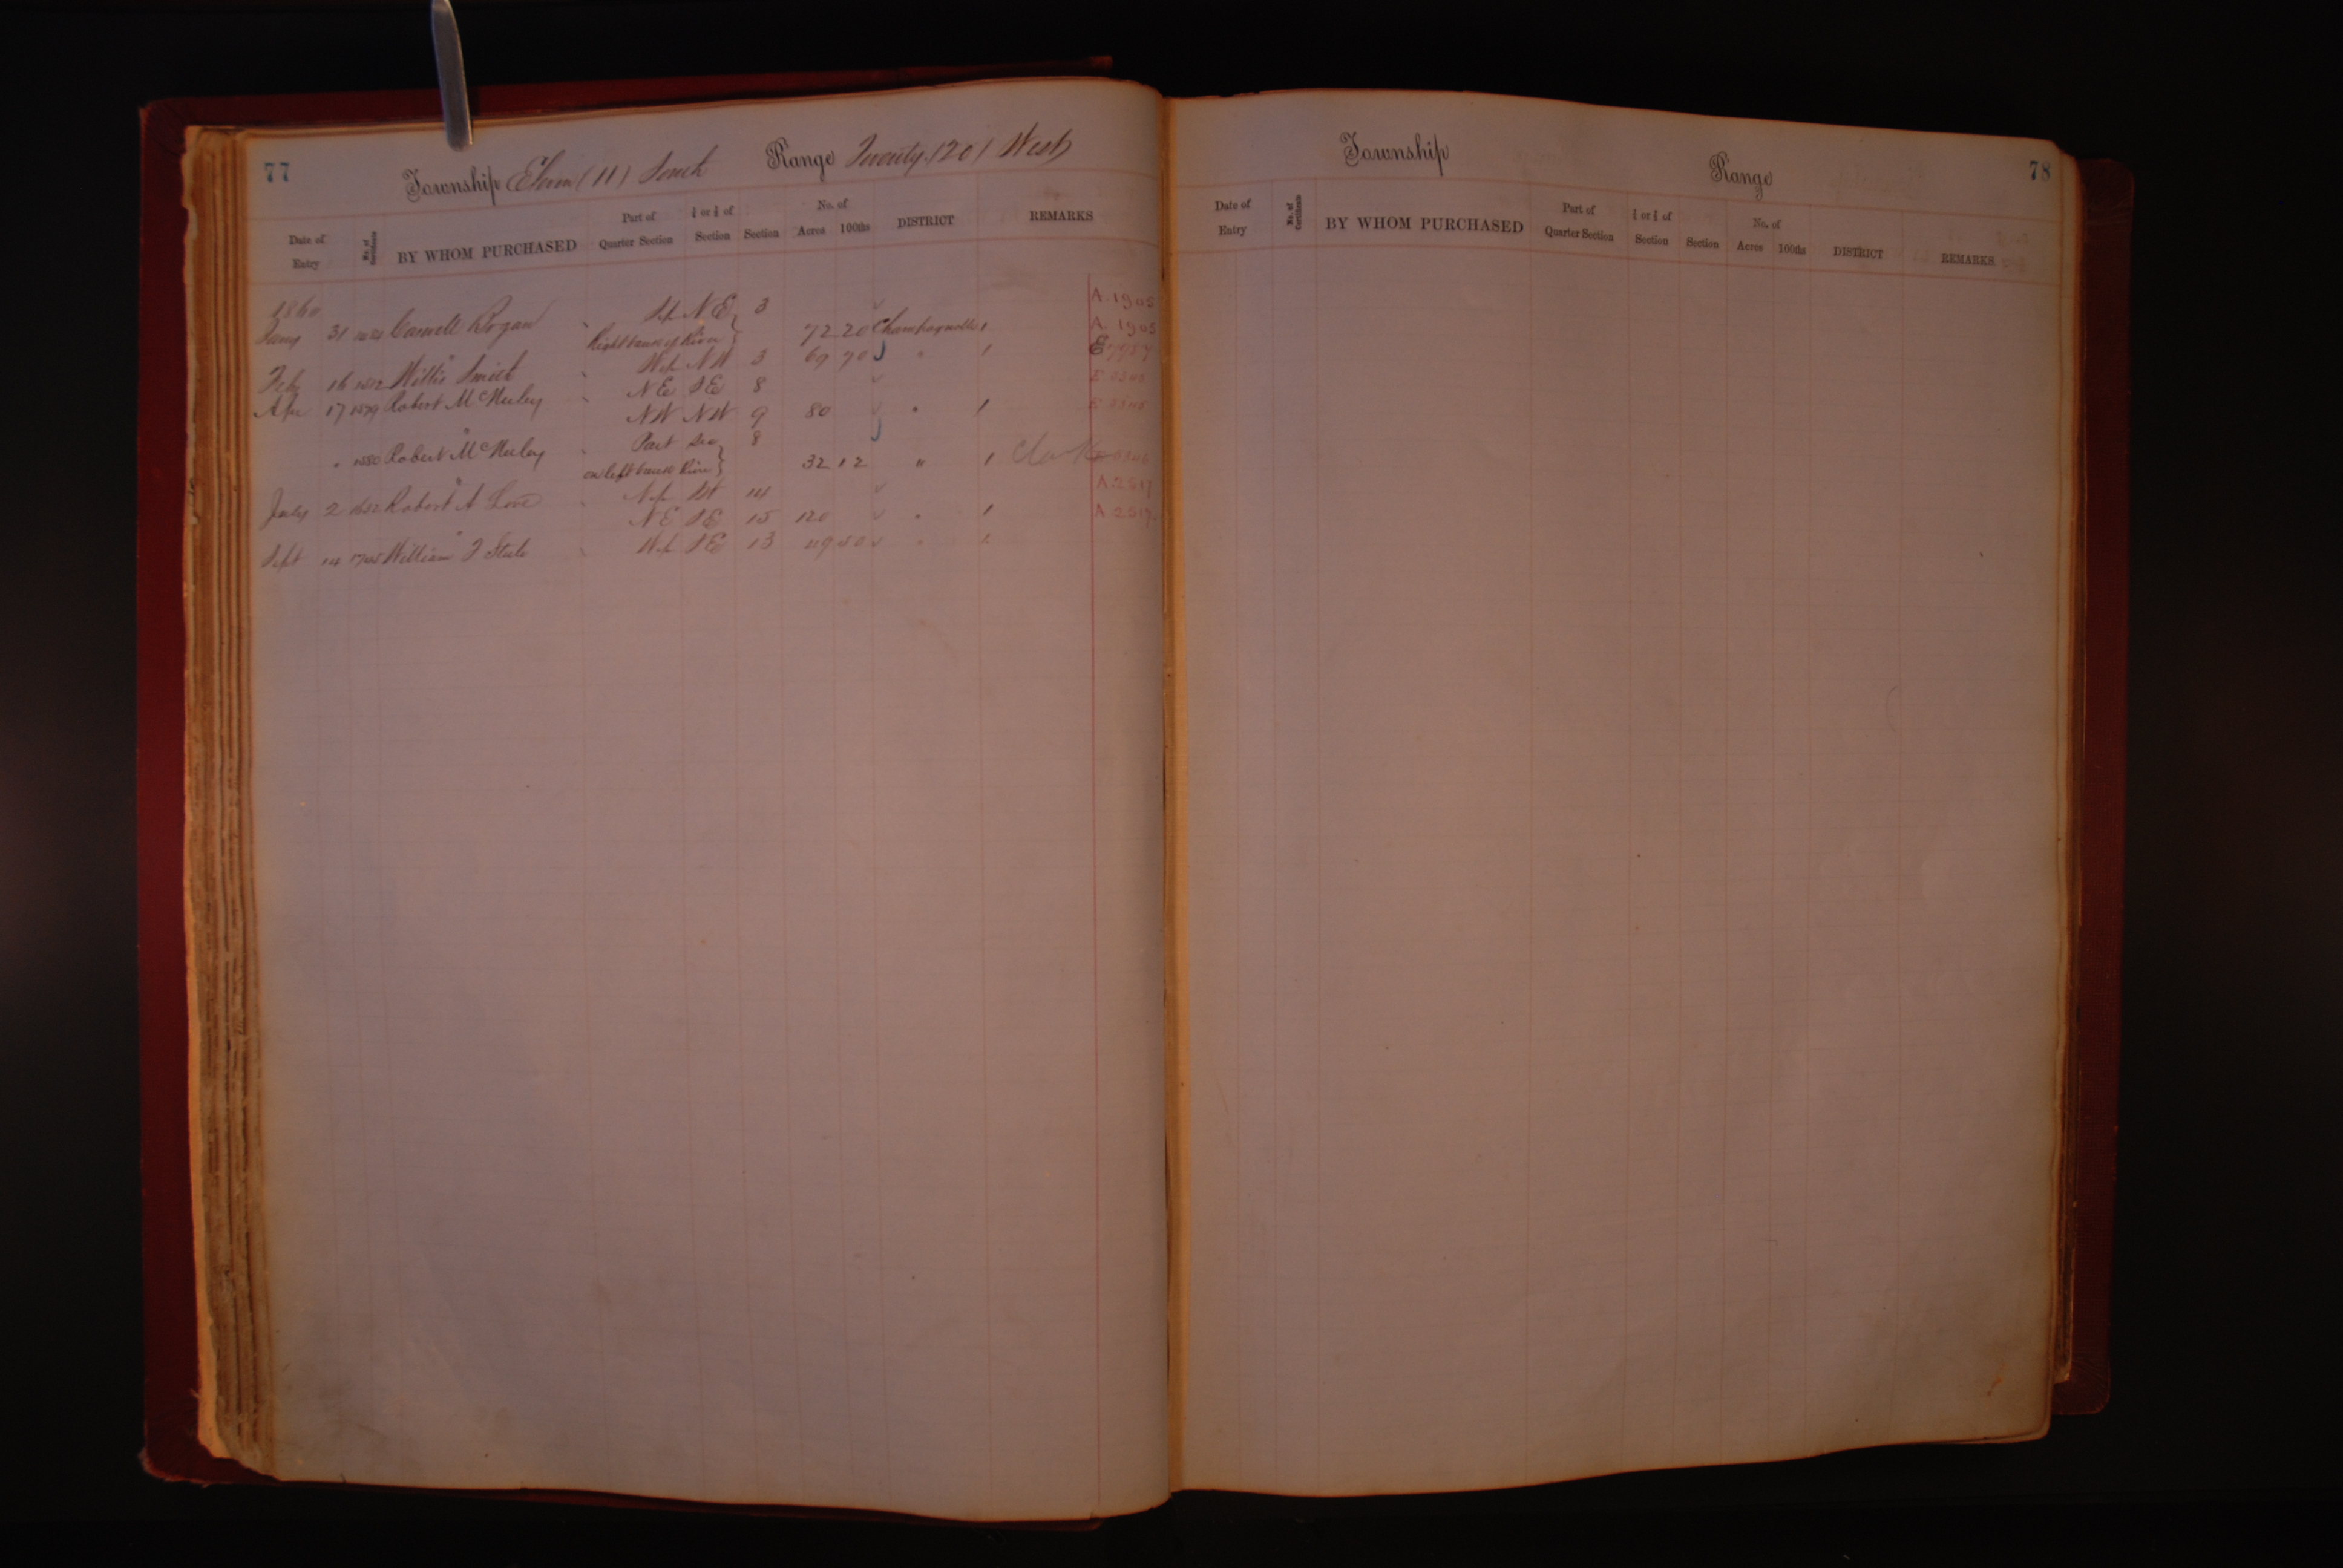 77
Township Eleven (11) South Range Twenty (20) West
Date of Entry No. of Certificate BY WHOM PURCHASED Part of Quarter Section ½ or ¼ of Section Section No. of Acres 100ths DISTRICT REMARKS
1860
Jany 31 Rogan S½ NE 3 A. 1905
Right bank of River 72 20 Champagnolle 1 A. 1905
Feby 16 1512 Willis Smith W½ NW 3 69 70 " 1
Apr 17 1579 Robert McNeeley NE SE 8
NW NW 9 80 " 1
" 1580 Robert McNeeley Part Sec 8
on left bank River 32 12 " 1
July 2 1652 Robert A Love N½ SW 14 A. 2517
NE SE 15 120 " 1 A 2517
Sept 14 William F Steele W½ SE 13 " 1
78
Township Range
Date of Entry No. of Certificate BY WHOM PURCHASED Part of Quarter Section ½ or ¼ of Section Section No. of Acres 100ths DISTRICT REMARKS